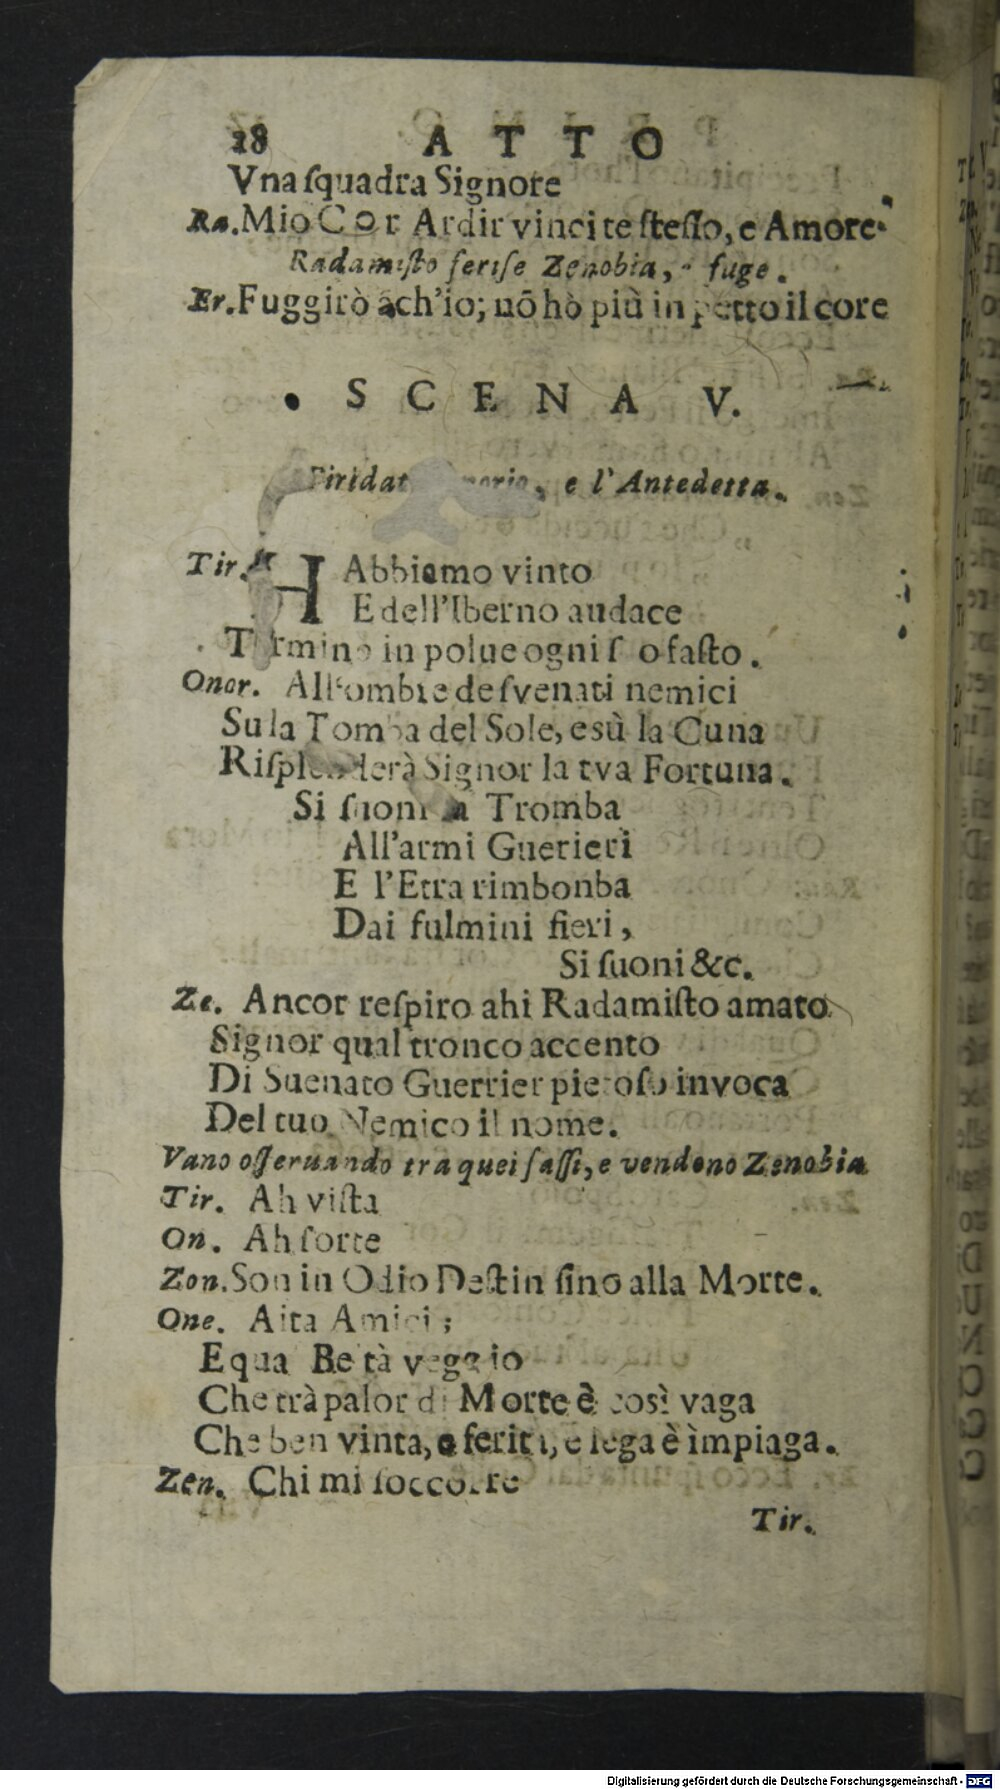 28 ATTO
Vna ſquadra Signore
Ra. Mio Cor Ardir vinci te ſteſſo, e Amore.
Radamiſto feriſe Zenobia, fuge.
Er. Fuggirò ãch'io; nõ hò più in petto il core
SCENA V.
Tiridat e l'Antedetta.
Tir. Abbiamo vinto
E dell'Iberno audace
Termino in polue ogni ſ o faſto.
Onor. All'ombre de ſvenati nemici
Su la Tomba del Sole, e sù la Cuna
Riſplenderà Signor la tva Fortuna.
Si ſuoni la Tromba
All'armi Guerieri
E l'Etra rimbonba
Dai fulmini fieri,
Si ſuoni &c.
Ze. Ancor reſpiro ahi Radamiſto amato
Signor qual tronco accento
Di Suenato Guerrier pietoſo invoca
Del tuo Nemico il nome.
Vano oſſeruando tra quei ſaſſi, e vendono Zenobia
Tir. Ah viſta
On. Ah ſorte
Zon. Son in Odio Deſtin ſino alla Morte.
One. Aita Amici;
E qua Beltà veggio
Che trà palor di Morte è così vaga
Che ben vinta, e ferita, e lega è ìmpiaga.
Zen. Chi mi ſoccorre
Tir.
Digitalisierung gefördert durch die Deutsche Forschungsgemeinschaft - DFG